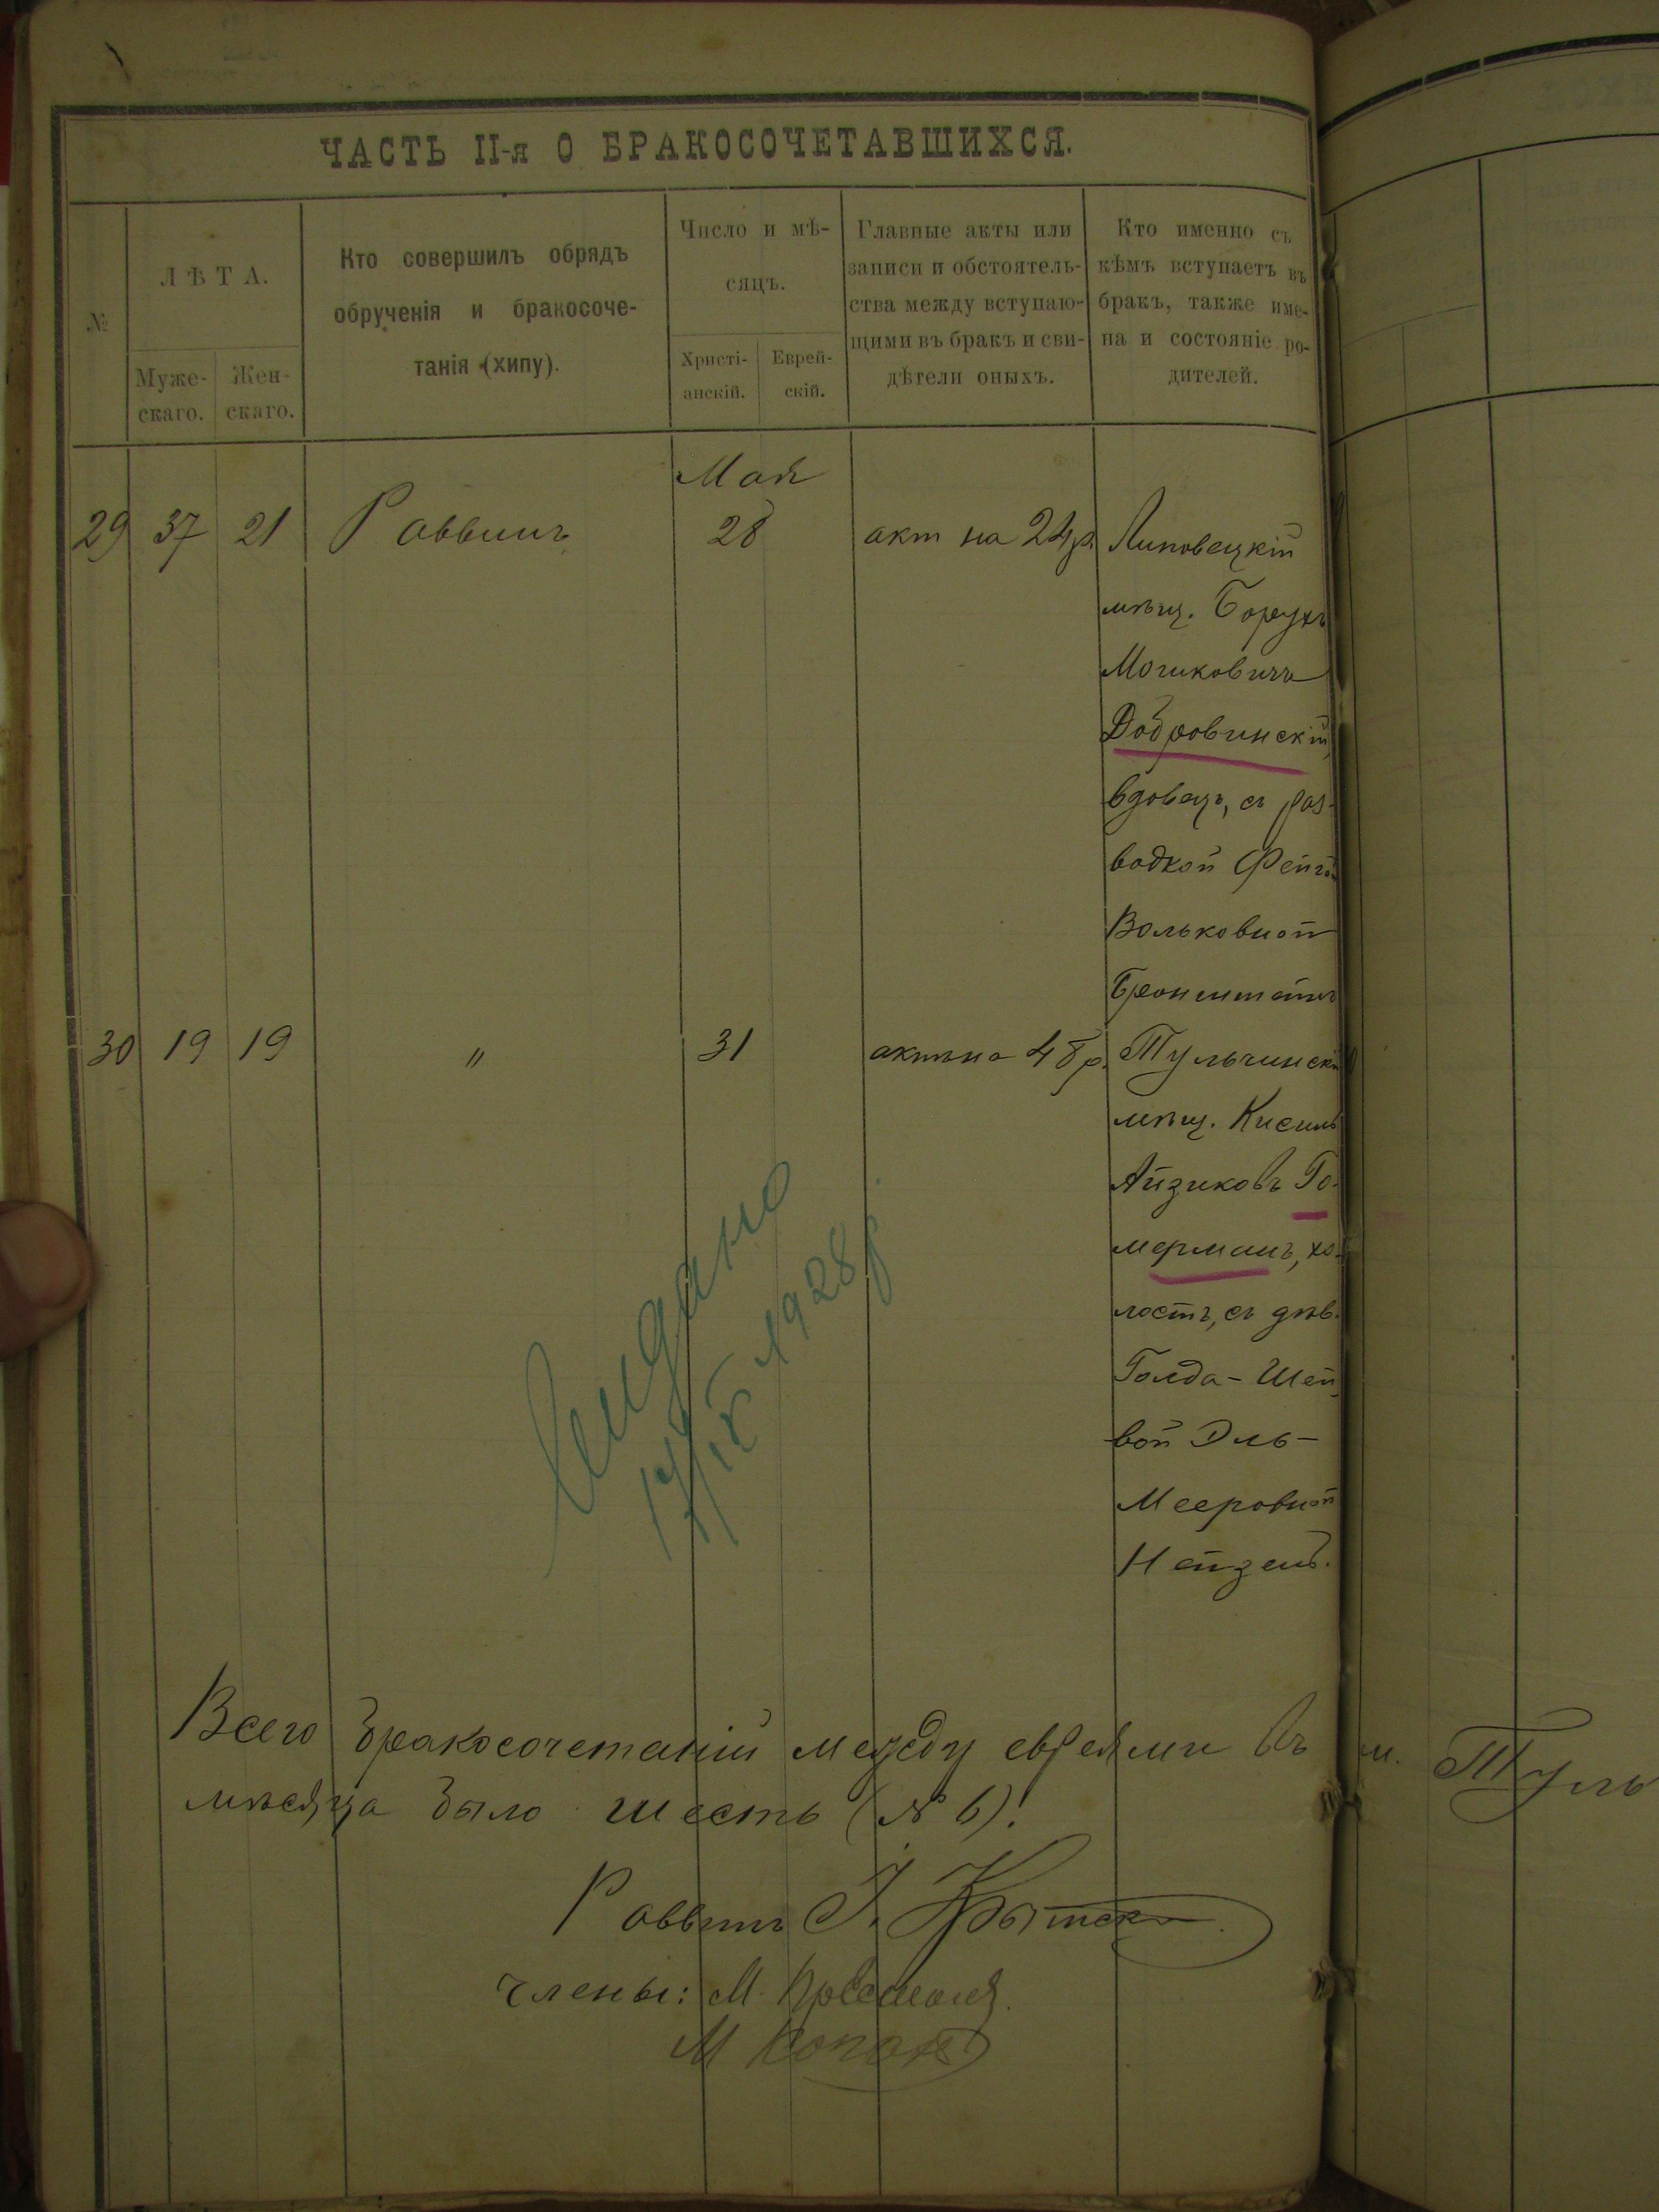 ЧАСТЬ II-я О БРАКОСОЧЕТАВШИХСЯ.
№
ЛѢТА.
Муже-
скаго.
Жен-
скаго.
Кто совершилъ обрядъ
обрученія и бракосоче-
танія (хипу).
Число и мѣ-
сяцъ.
Христі-
анскій.
Еврей-
скій.
Главные акты или
записи и обстоятель-
ства между вступаю-
щими въ бракъ и сви-
дѣтели оныхъ.
Кто именно съ
кѣмъ вступаетъ въ
бракъ, также име-
на и состояніе ро-
дителей.
Май
29 37 21 Раввинъ 28 акт на 24 р. Липовецкій
мѣщ. Борухъ
Мошковичъ
Добровинскій,
вдовецъ, съ раз-
водкой Фейгой
Вольковной
Бронштейнъ
30 19 19 " 31 актъ на 48 р. Тульчинскій
мѣщ. Кисиль
Айзиковъ Го-
мерманъ, хо-
лостъ, съ дѣв.
Голда-Шей
вой Эль-
Мееровной
Нейзеръ.
Видано
17/IX 1928 р.
Всего бракосочетаній между евреями въ м. Туль
мѣсяца было шесть (№ 6)!
Раввинъ І.
Члены: М.
М Коган